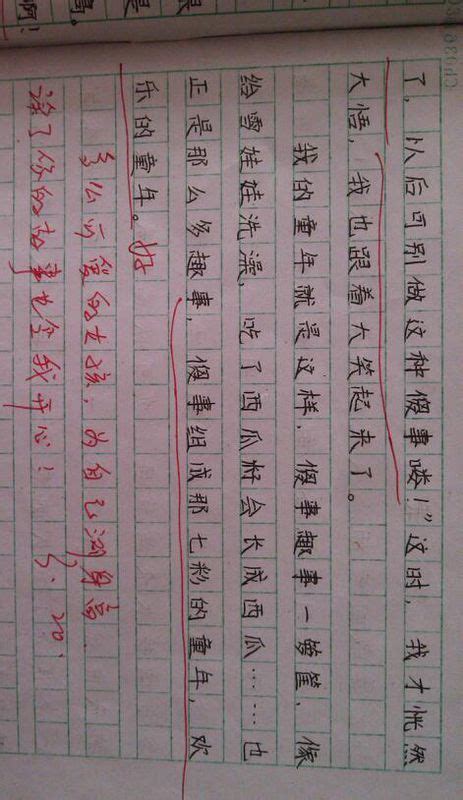 了，以后可别做这种傻事喽！”这时，我才恍然
大悟，我也跟着大笑起来了。
我的童年就是这样，傻事趣事一箩筐，像
给雪娃娃洗澡，吃了西瓜籽会长成西瓜……也
正是那么多趣事，傻事组成那七彩的童年，欢
乐的童年。好
多么可爱的女孩，为自己
读了你的故事也令我开心！
5.20.